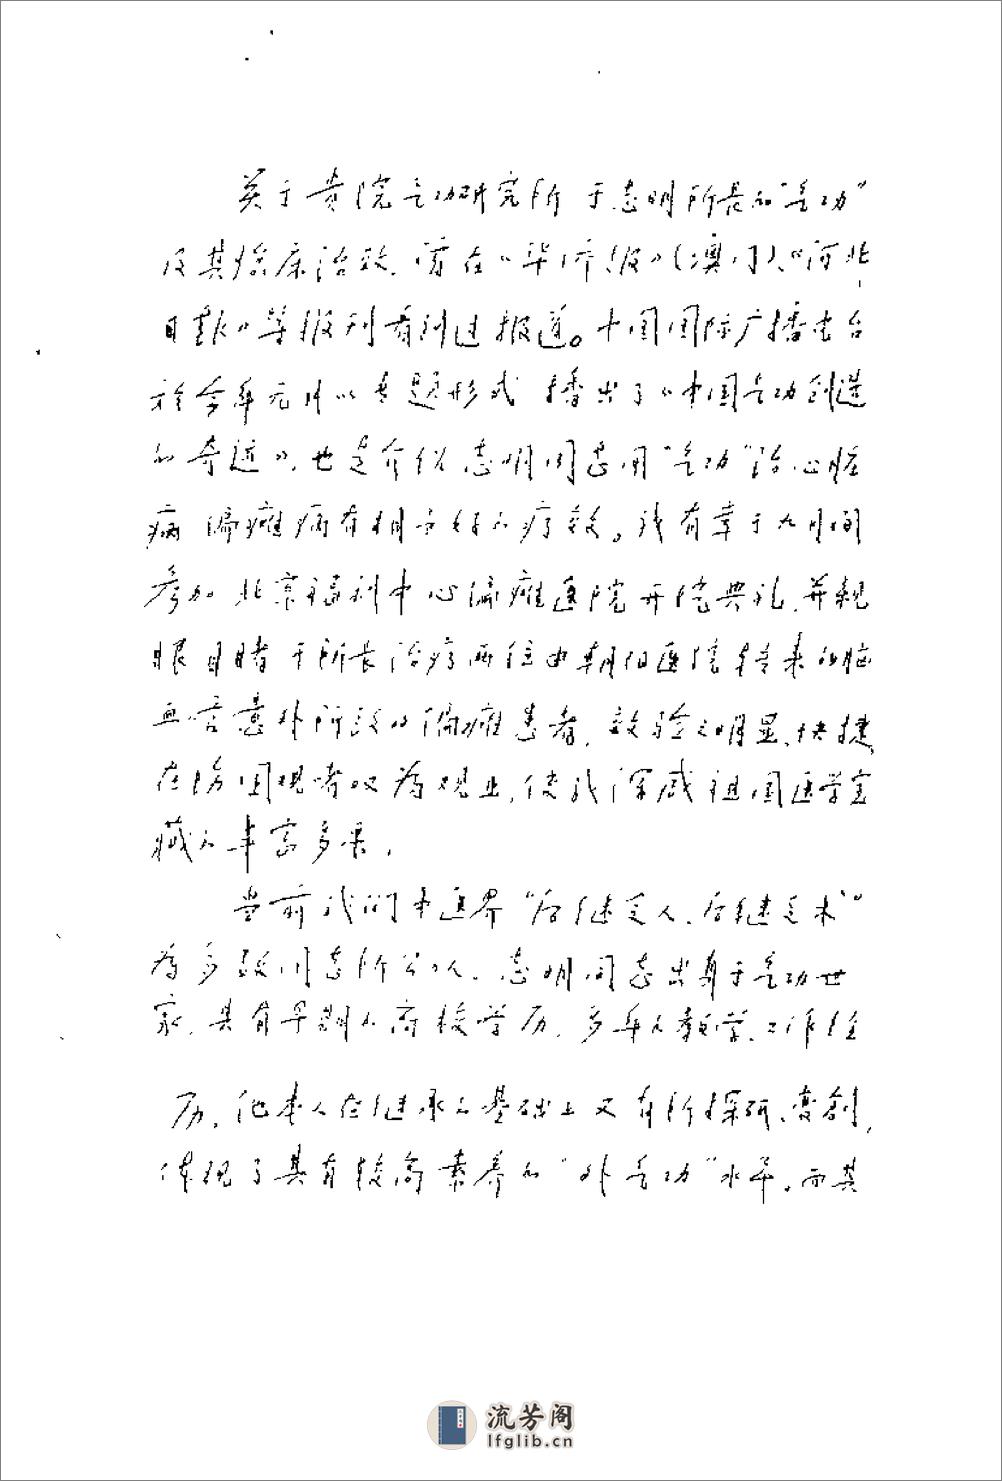 关于贵院气功研究所于志明所长的“气功”
及其临床治效，曾在《华侨报》（澳门）、《河北
日报》等报刊看到过报道。中国国际广播电台
于今年元月以专题形式播出了《中国气功创造
的奇迹》，也是介绍志明同志用“气功”治心脏
病偏瘫病有相当好的疗效。我有幸于九月间
参加北京福利中心偏瘫医院开院典礼，并亲
眼目睹于所长治疗两位由朝阳医院转来的脑
血管意外所致的偏瘫患者，效验之明显、快捷，
在场围观者叹为观止，使我深感祖国医学宝
藏之丰富多采。
当前我们中医界“后继乏人、后继乏术”
为多数同志所公认。志明同志出身于气功世
家，具有早期的高校学历，多年的教学、工作经
历，他本人在继承的基础上又有所探研、变创，
体现了具有较高素养的“外气功”水平。而其
流芳阁
lfglib.cn